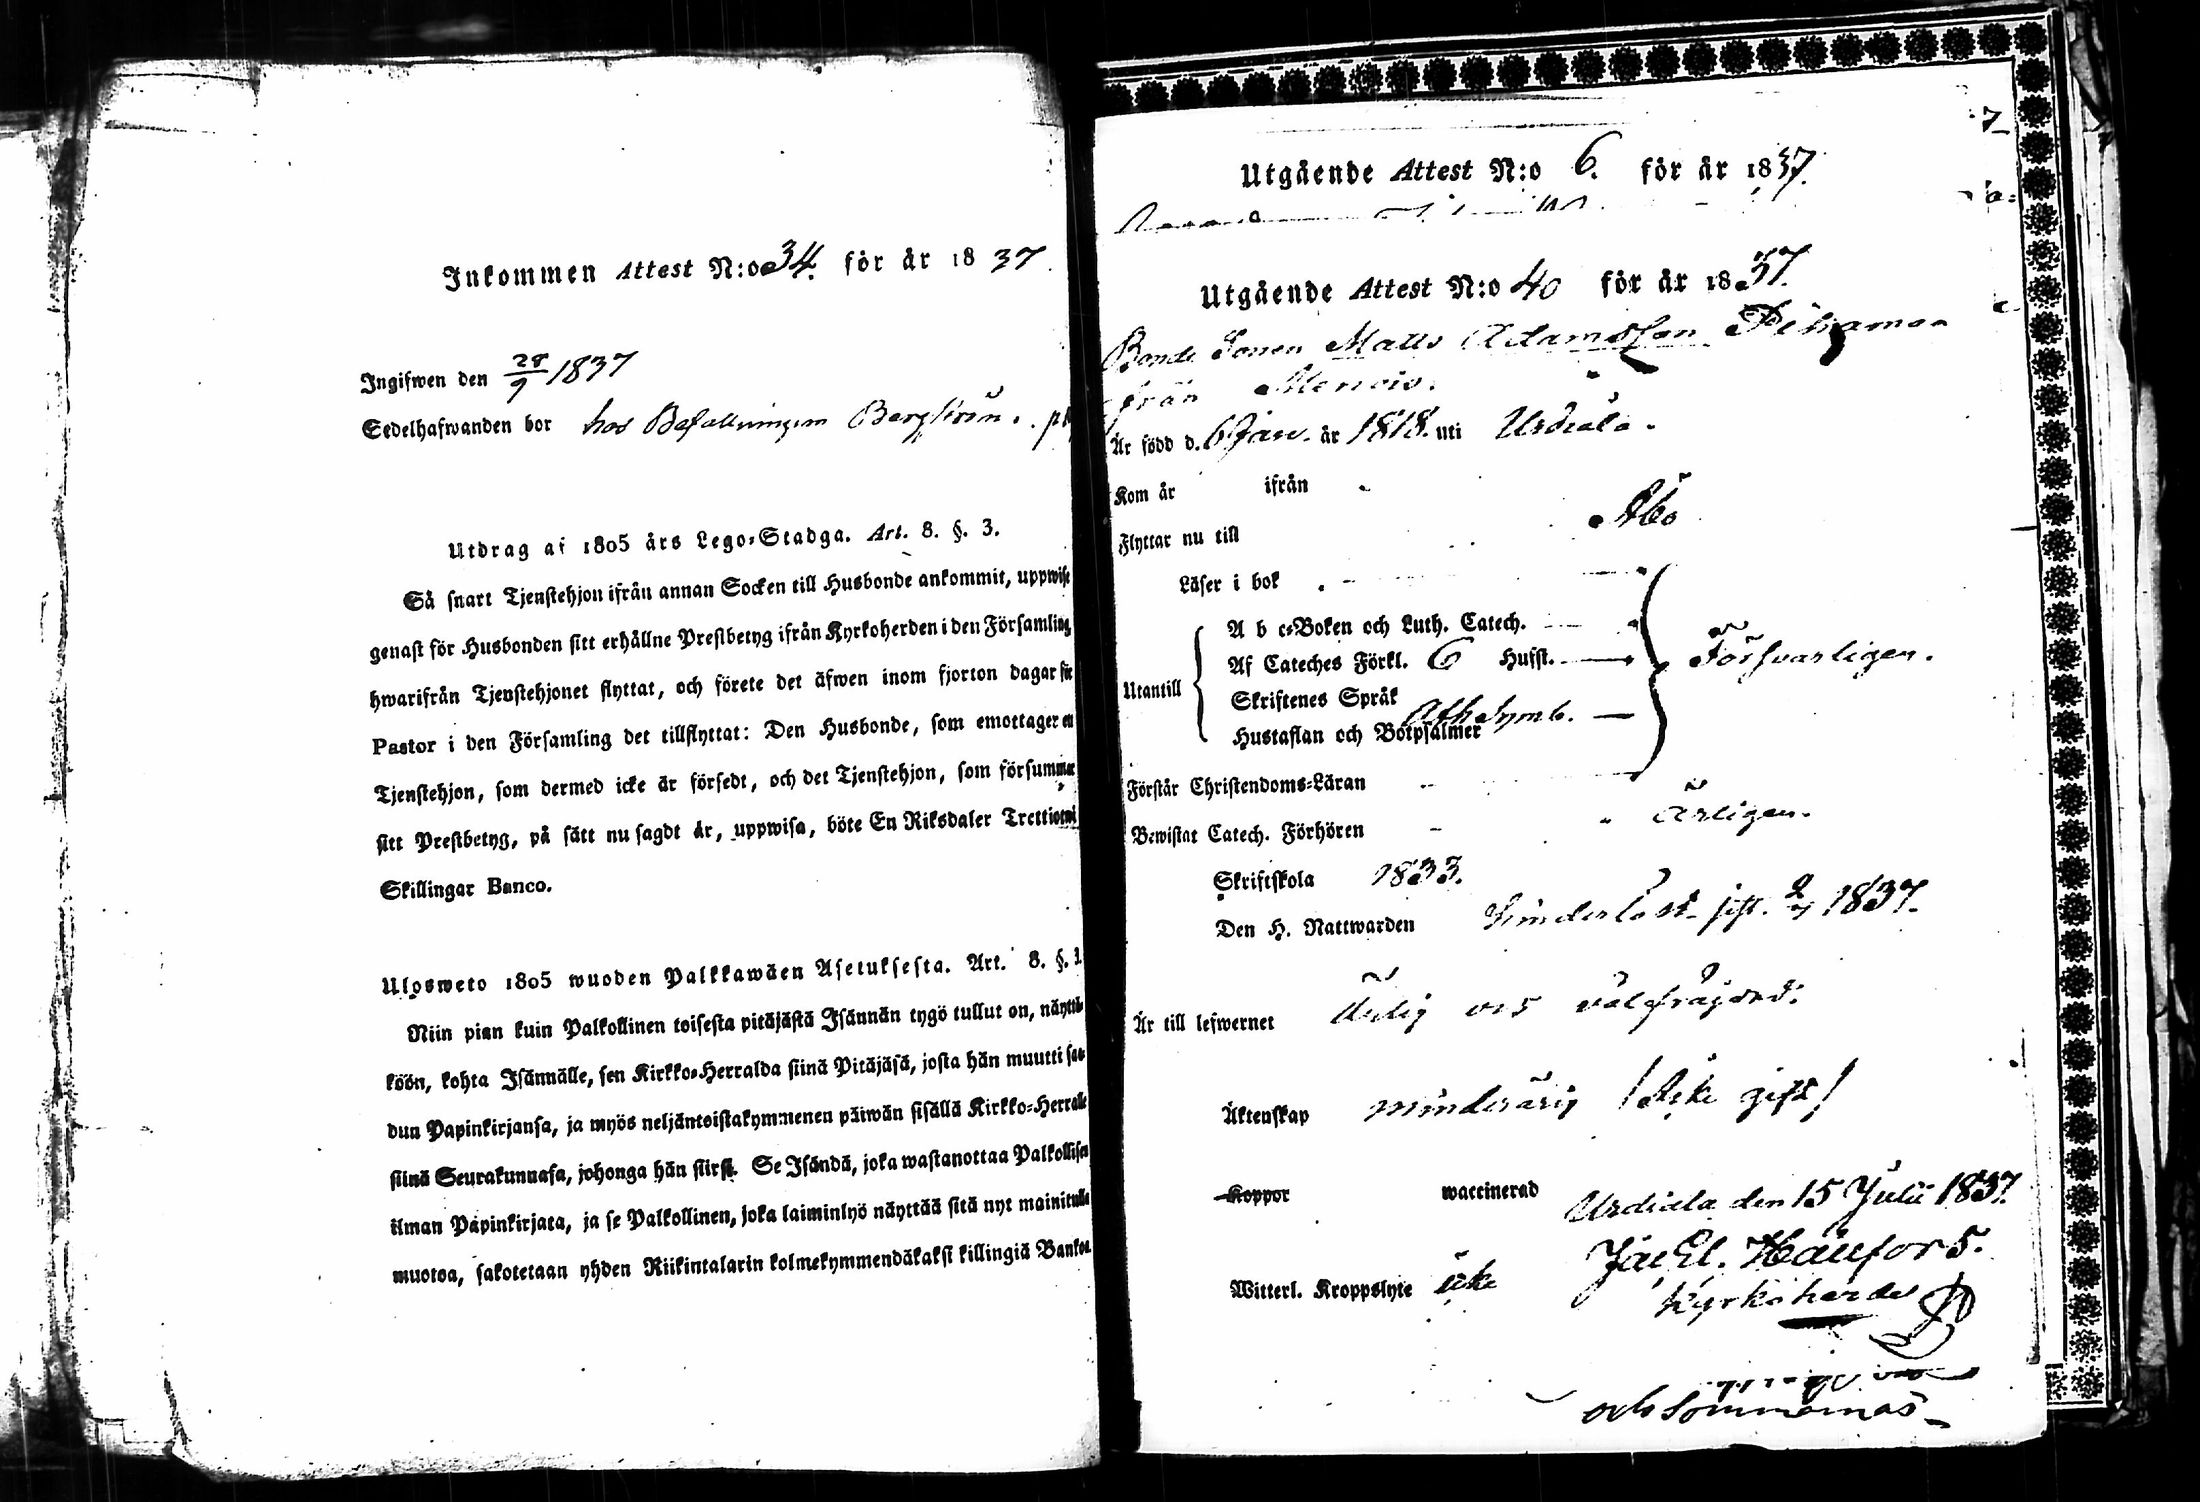 Inkommen Attest N:o 34. för år 1837
Ingifwen den 28/9 1837
Sedelhafwanden bor hos Befallningsm Bergström.
Utdrag af 1805 års Lego-Stadga. Art. 8. §. 3.
Så snart Tjenstehjon ifrån annan Socken till Husbonde ankommit, uppwise
genast för Husbonden sitt erhållne Prestbetyg ifrån Kyrkoherden i den Församling
hwarifrån Tjenstehjonet flyttat, och förete det äfwen inom fjorton dagar för
Pastor i den Församling det tillflyttat: Den Husbonde, som emottager en
Tjenstehjon, som dermed icke är försedt, och det Tjenstehjon, som försummar
sitt Prestbetyg, på sätt nu sagdt är, uppwisa, böte En Riksdaler Trettiotwå
Skillingar Banco.
Ulosweto 1805 wuoden Palkkawäen Asetuksesta. Art. 8. §. 3.
Niin pian kuin Palkollinen toisesta pitäjästä Isännän tygö tullut on, näyttä-
köön, kohta Isännälle, sen Kirkko-Herralda siinä Pitäjäsä, josta hän muutti saa-
dun Papinkirjansa, ja myös neljäntoistakymmenen päiwän sisällä Kirkko-Herralle
siinä Seurakunnasa, johonga hän siirsi. Se Isändä, joka wastanottaa Palkollisen
ilman Papinkirjata, ja se Palkollinen, joka laiminlyö näyttää sitä nyt mainitulla
muotoa, sakotetaan yhden Riikintalarin kolmekymmendäkaksi killingiä Bankoa.
7
Utgående Attest N:o 6. för år 1837.
Utgående Attest N:o 40 för år 1837.
Bonde Sonen Matts Adamsson
från
Är född d. 6 Jan. år 1818. uti Urdiala.
Kom år ifrån
Flyttar nu till Åbo
Läser i bok
A b c-Boken och Luth. Catech.
Utantill Af Cateches Förkl. 6 Hufst. Försvarligen.
Skriftenes Språk
Hustaflan och Botpsalmer Ath Symb.
Förstår Christendoms-Läran
Bewistat Catech. Förhören Ärligen.
Skriftskola 1833.
Den H. Nattwarden 1837.
Är till lefwernet Ärlig och välfrägdad.
Äktenskap minderårig /Icke gift/
Koppor waccinerad
Urdiala den 15 Julii 1837.
Witterl. Kroppslyte icke
Kyrkoherde